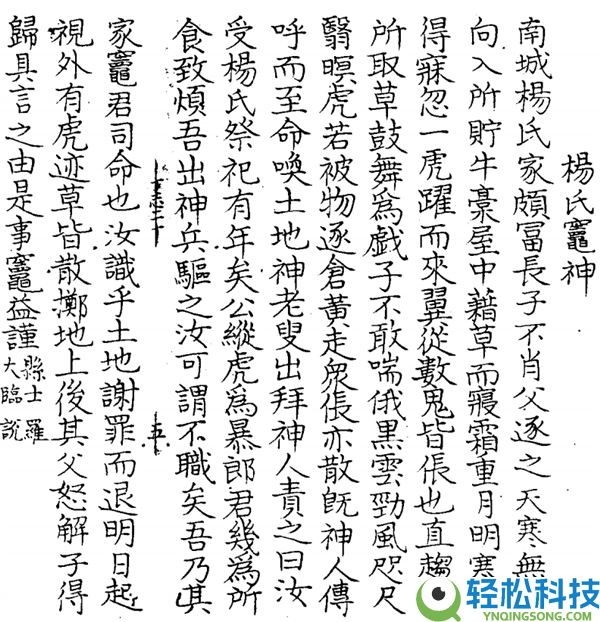 楊氏竈神
南城楊氏家頗冨長子不肖父逐之天寒無
向入所貯牛藁屋中藉草而寢霜重月明寒
得寐忽一虎躍而來翼從數鬼皆倀也直趨
所取草鼓舞爲戲子不敢喘俄黒雲勁風咫尺
翳暝虎若被物逐倉黃走衆倀亦散旣神人傳
呼而至命喚土地神老叟出拜神人責之曰汝
受楊氏祭祀有年矣公縱虎爲暴郎君幾爲所
食致煩吾出神兵驅之汝可謂不職矣吾乃其
家竈君司命也汝識乎土地謝罪而退明日起
視外有虎迹草皆散擲地上後其父怒解子得
歸具言之由是事竈益謹縣士羅
大臨說
五
轻松科技
YNQINGSONG.COM